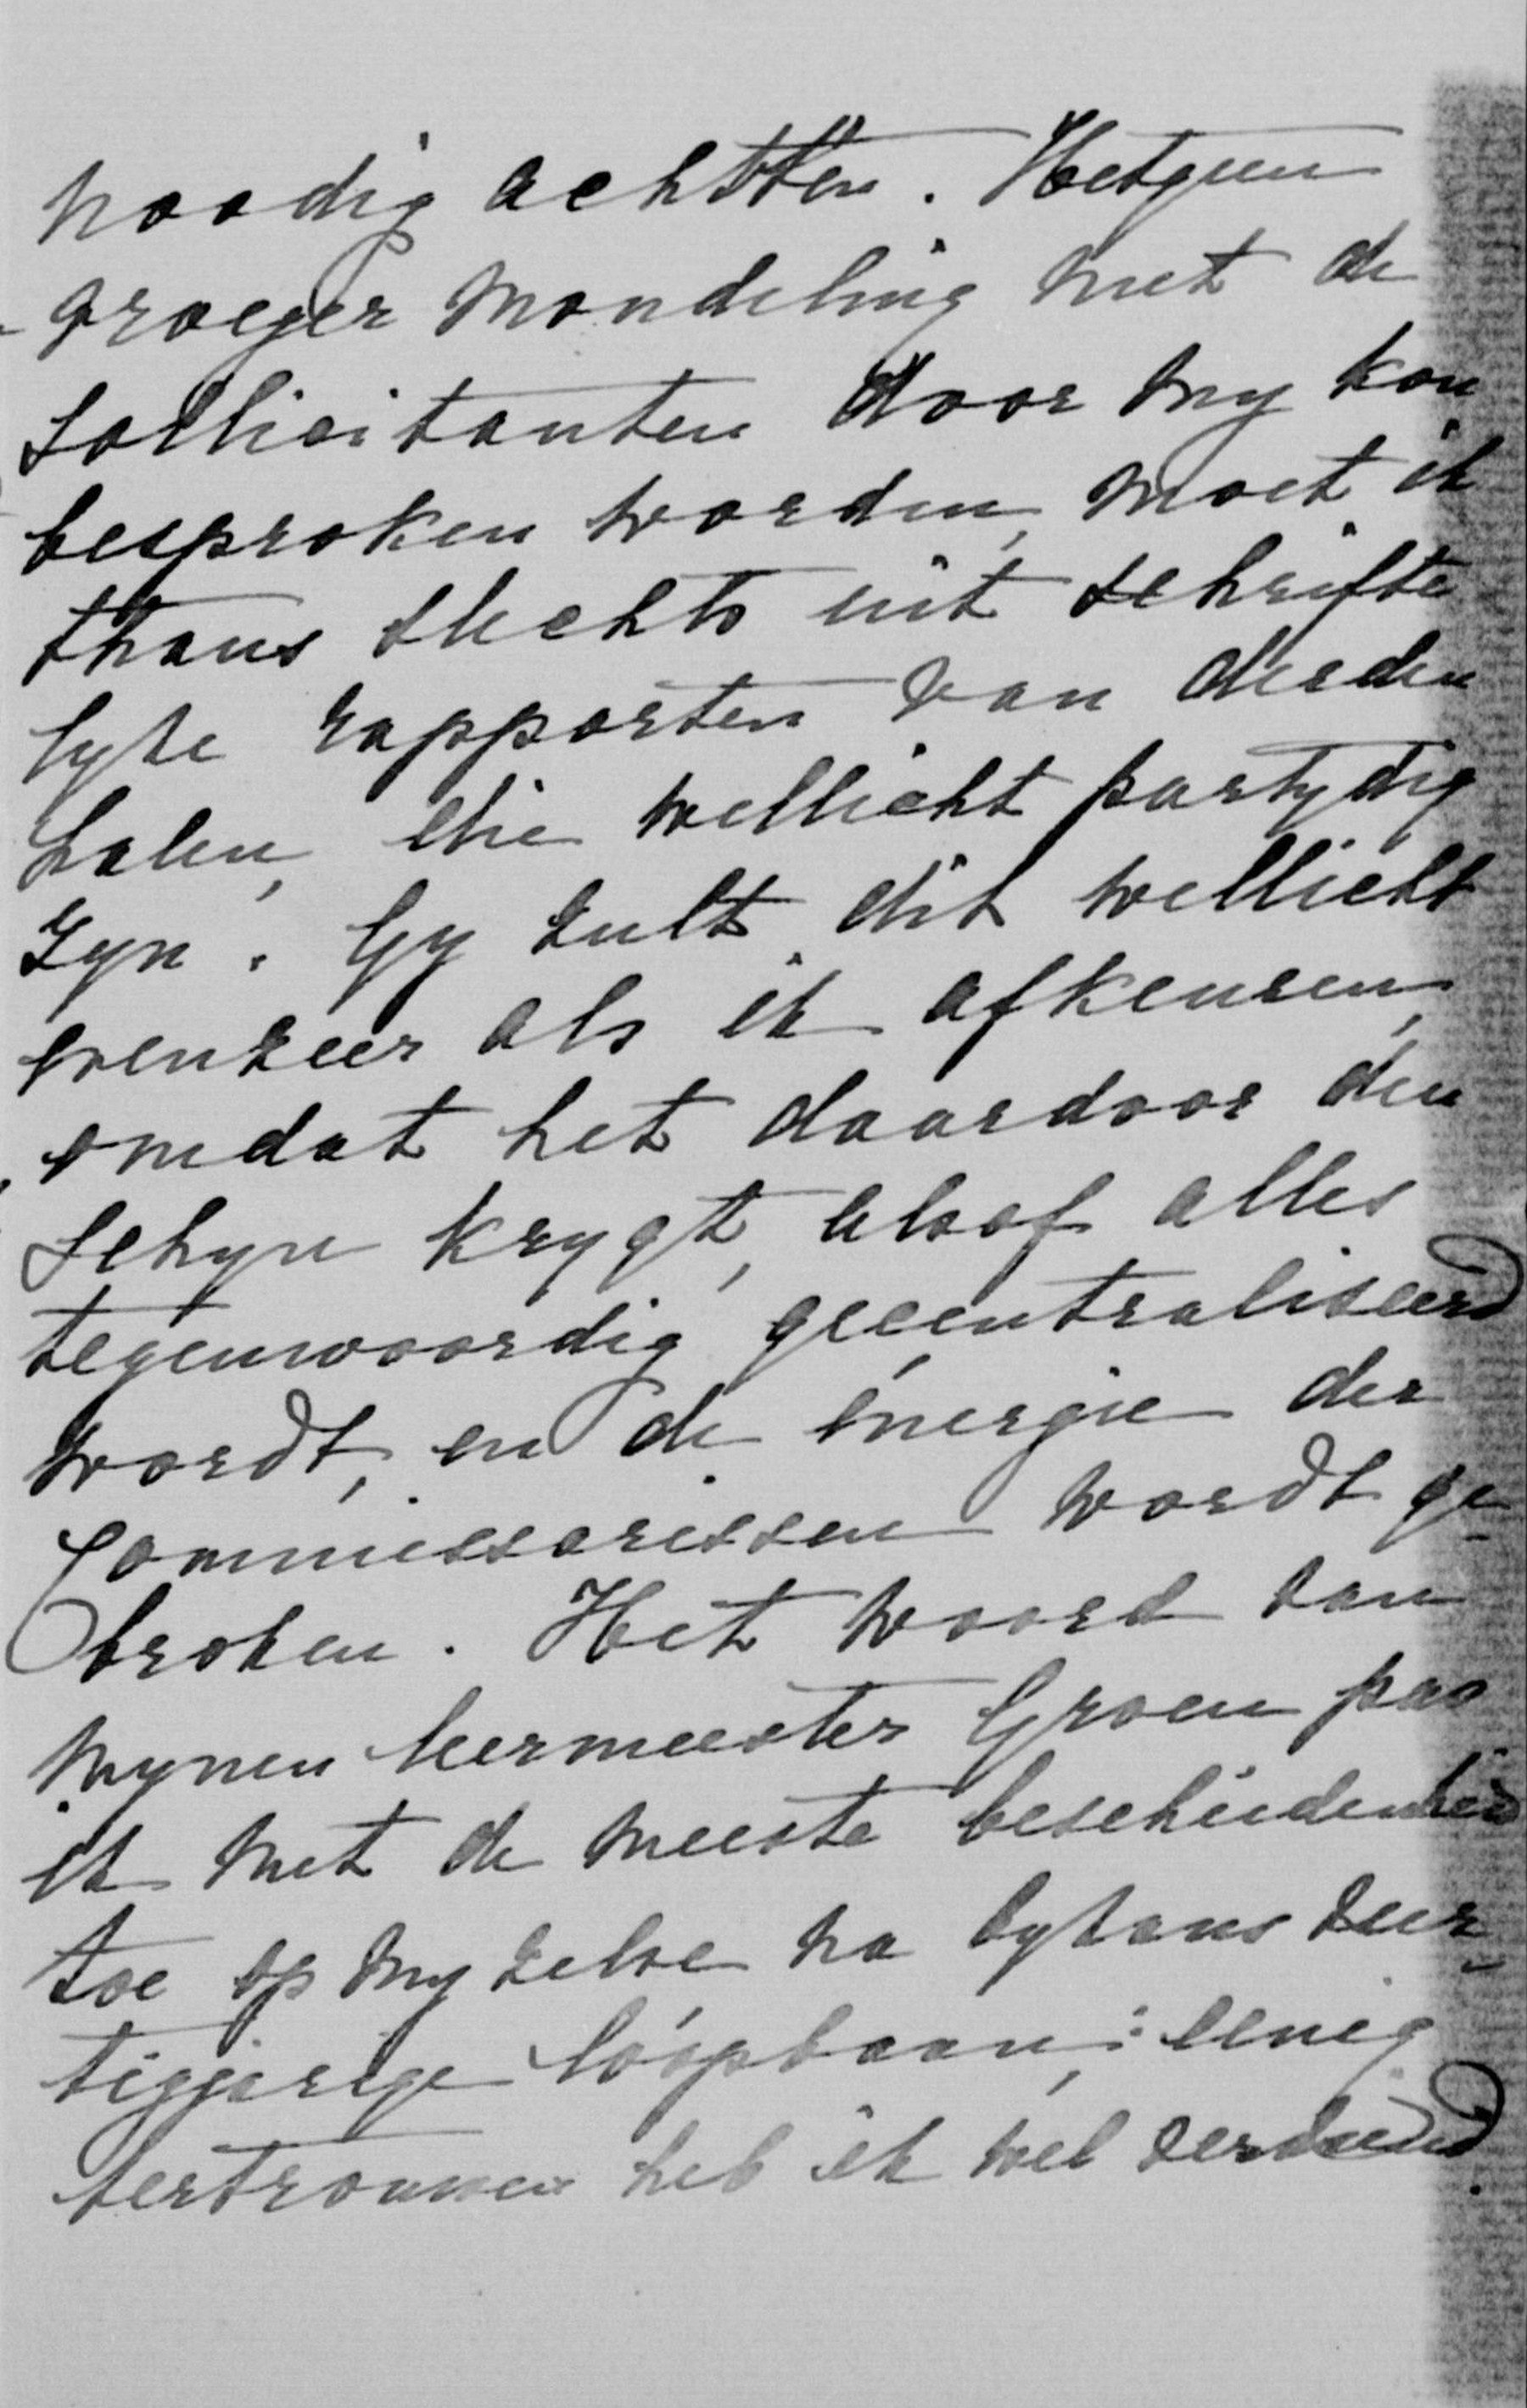 noodig achtten. Hetgeen
vroeger mondeling met de
sollicitanten door my kon
besproken worden, moet ik
thans slechts uit schrifte
lyke rapporten van derden
halen, die wellicht partydig
zyn. Gy zult dit wellicht
evenzeer als ik afkeuren,
omdat het daardoor den
schyn krygt, alsof alles
tegenwoordig gecentraliseerd
wordt, en de énergie der
Commissarissen wordt ge-
broken. Het woord van
mynen leermeester Groen pas
ik met de meeste bescheidenheid
toe op my zelve na bykans veer-
tigjarige loopbaan: eenig
vertrouwen heb ik wel verdiend.